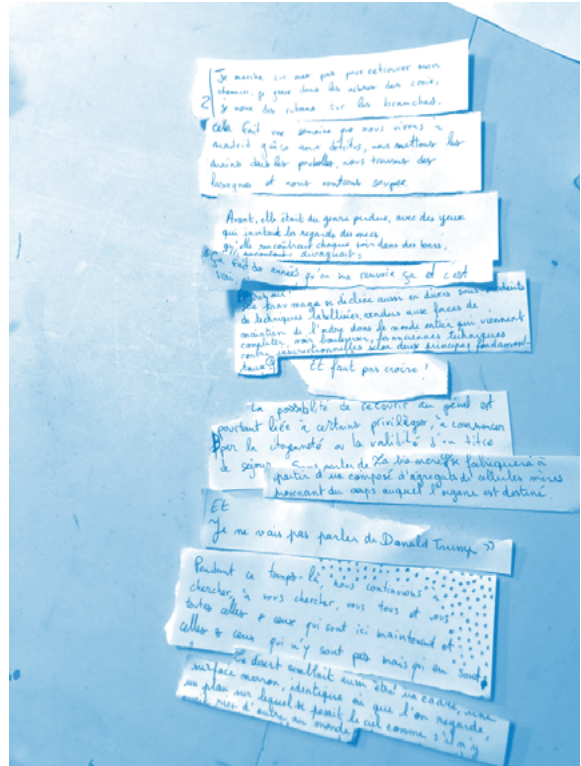 Je marche sur mes pas pour retrouver mon
chemin, je grave dans les arbres des croix,
2 je noue des rubans sur les branches.
cela fait une semaine que nous vivons à
madrid grâce aux détritus, nous mettons les
mains dans les poubelles, nous trouvons des
lasagnes et nous rentrons souper.
Avant, elle était du genre perdue, avec des yeux
qui imitait les regards des mecs
qu'elle rencontrait chaque soir dans des bars,
Ça fait 20 années qu'on me renvoie ça et c'est
vrai
se décline aussi en divers sous-produits
de techniques labellisées, vendus aux forces de
maintien de l'ordre dans le monde entier qui viennent
compléter, voir bouleverser, les anciennes techniques
contre insurrectionnelles selon deux principes fondamen-
taux
Et faut pas croire !
La possibilité de recourir au pénal est
pourtant liée à certains privilèges, à commencer
par la citoyenneté ou la validité d'un titre
de séjour. Sans parler de La bio-mereils se fabriquera à
partir d'un composé d'agrégats de cellules mères
provenant du corps auquel l'organe est destiné.
Et
Je ne vais pas parler de Donald Trump >>
Pendant ce temps-là, nous continuons à
chercher, à vous chercher, vous tous et vous
toutes celles & ceux qui sont ici maintenant et
celles & ceux qui n'y sont pas mais qui en sont.
Le désert semblait aussi être un cadre, une
surface marron, identique où que l'on regarde,
un plan sur lequel se posait le ciel comme s'il n'y
avait rien d'autre au monde